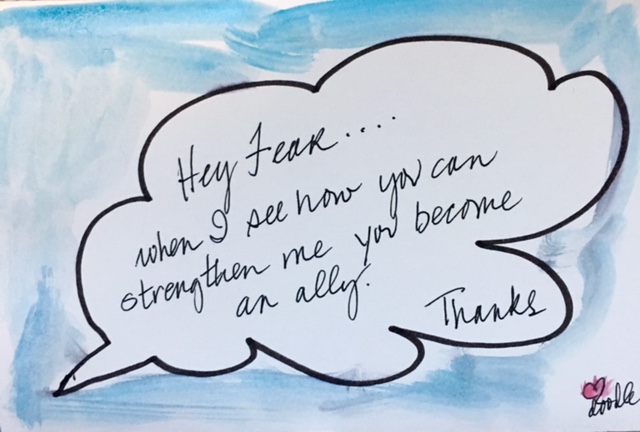 Hey Fear....
when I see how you can
strengthen me you become
an ally.
Thanks
doodle